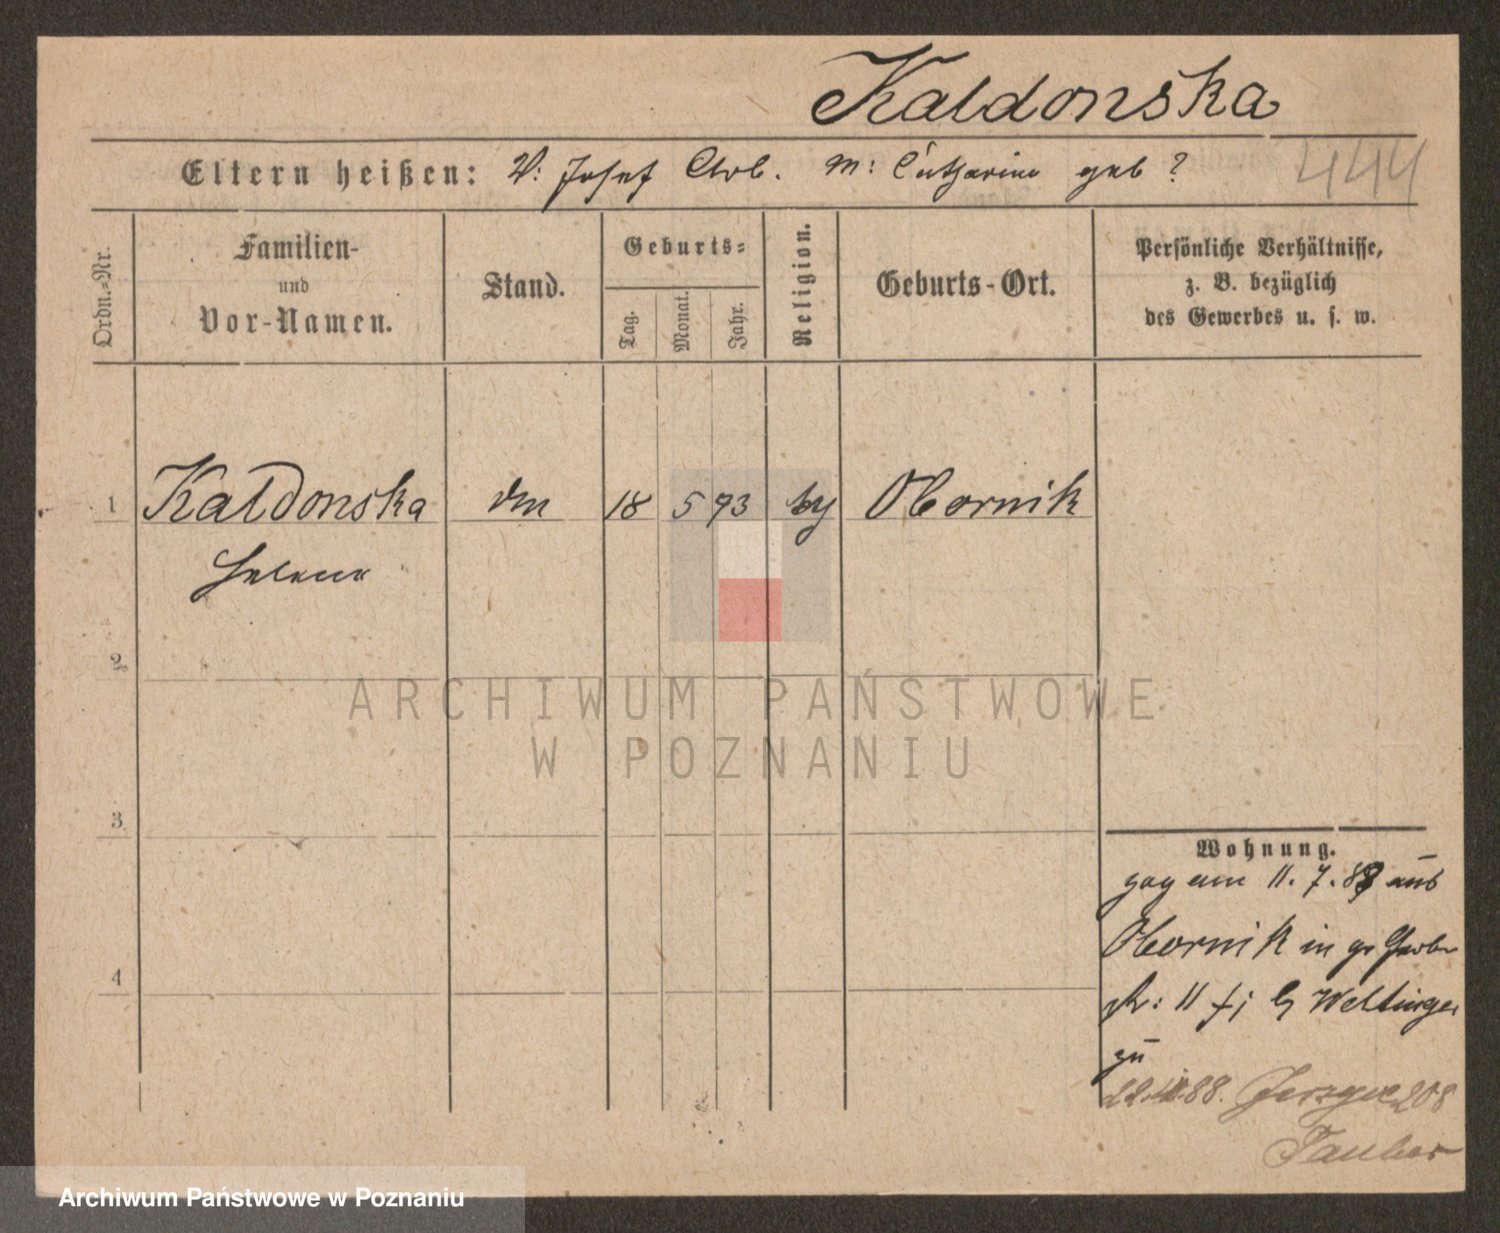 Kaldonska
Eltern heißen: V: Josef Arb. M: Catharina geb ?
444
Ordn.-Nr.
Familien-
und
Vor-Namen.
Stand.
Geburts-
Tag.
Monat.
Jahr.
Religion.
Geburts-Ort.
Persönliche Verhältnisse,
z. B. bezüglich
des Gewerbes u. s. w.
1 Kaldonska 18 5 73 Obornik
Helena
2
3
4
Wohnung.
zog am 11. 7. 88 aus
Obornik in gr Gerber
str: 11 b Weltinger
zu
88. 208
Tauber
ARCHIWUM PAŃSTWOWE
W POZNANIU
Archiwum Państwowe w Poznaniu